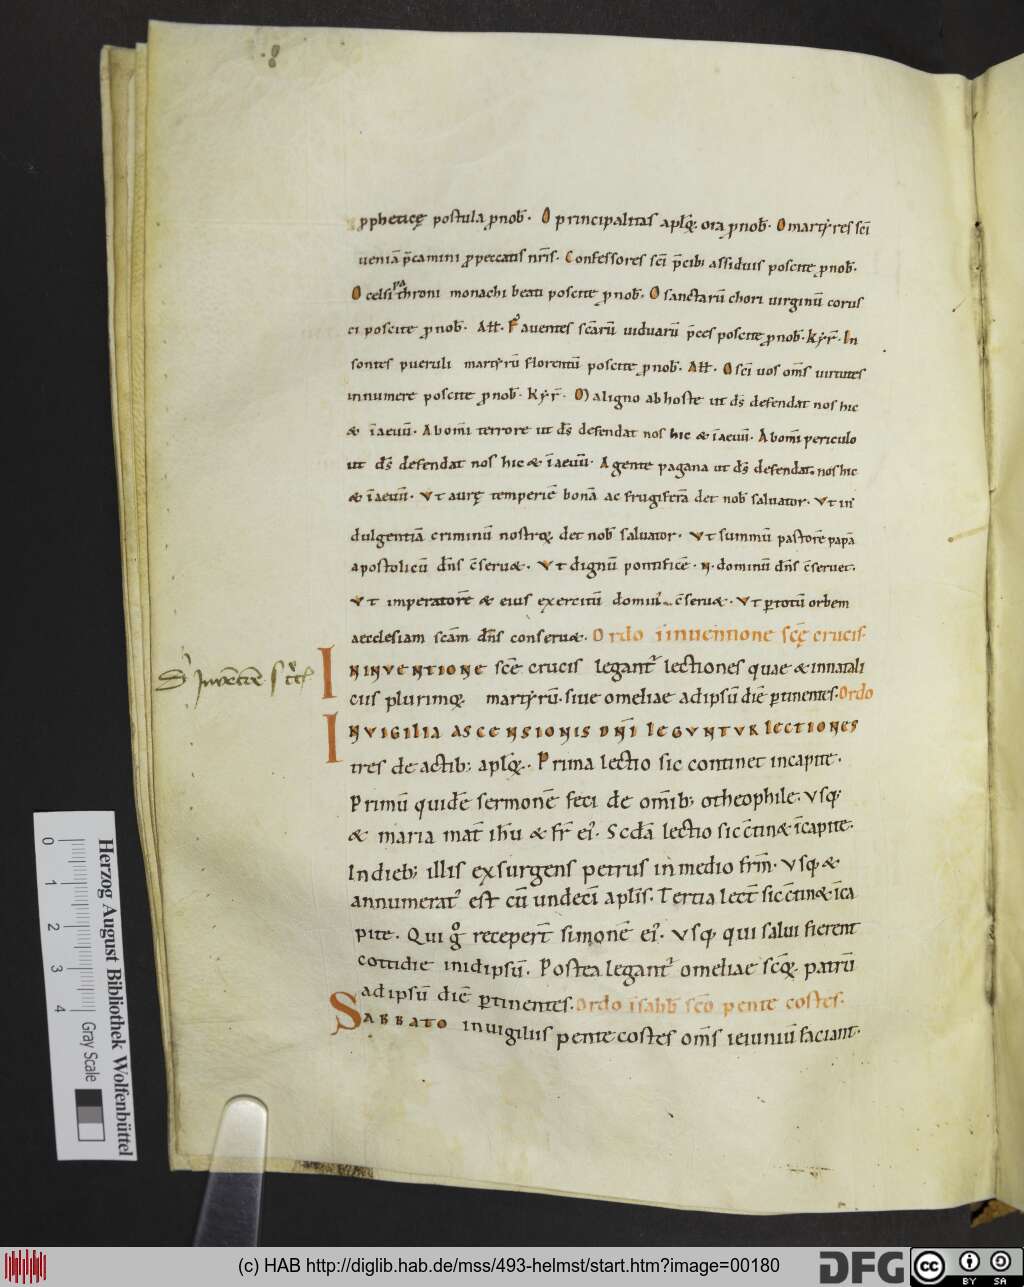 ppheticę postula pnob̄. O principalitas aplꝗ; ora pnob̄. O martẏres sc̄i
ueniā p̄camini ppeccatis nr̄is. Confessores sc̄i p̄cib; assiduis poscite pnob̄.
O celsi thronι monachi beati poscite pnob̄. O sanctarū chori uirginū corus
ci poscite pnob̄. All̄. Fauentes sc̄arū uiduarū p̄ces poscite pnob̄. kẏr̄. In
sontes pueruli martẏrū florentū poscite pnob̄. All̄. O sc̄i uos om̄s uirtutes
innumere poscite pnob̄. kẏr̄. O Maligno ab hoste ut d̄s defendat nos hic
& īaeuū. Ab om̄i terrore ut d̄s defendat nos hic & īaeuū. Ab om̄i periculo
ut d̄s defendat nos hic & īaeuū. A gente pagana ut d̄s defendat nos hic
& īaeuū. Vt aurę temperiē bonā ac frugiferā det nob̄ saluator. Vt in
dulgentiā criminū nostroꝝ det nob̄ saluator. Vt summū pastorē papā
apostolicū dn̄s c̄seruet. Vt dignū pontificē .N. dominū dn̄s c̄seruet.
Vt imperatorē & eius exercitū c̄seru&. Vt p totū orbem
aecclesiam sc̄am dn̄s conseru&. Ordo ī inuentione sc̄ę crucis.
IN INVENTIONE sc̄e crucis legant᷑ lectiones quae & in natali
ciis plurimoꝝ martẏrū. siue omeliae ad ipsū diē ptinentes. Ordo
IN VIGILIA ASCENSIONIS DN̄I LEGVNTVR LECTIONES
tres de actib; aplꝝ. Prima lectio sic continet in capite.
Primū quidē sermonē feci de om̄ib; o theophile. Vsq;
& maria mat̄ ihū & fr̄ ei᷒. Scda lectio sic c̄tin& ī capite.
In dieb; illis exsurgens petrus in medio frm̄. Vsq; &
annumerat᷒ est cū undeci apl̄is. Tertia lect̄ sic c̄tin& ī ca
pite. Qui g̊ recepert̄ simonē ei᷒. Vsq; qui salui fierent
cottidie in idipsū. Postea legant᷑ omeliae sc̄oꝝ patrū
ad ipsū diē ptinentes. Ordo ī sabb̄ sc̄o pente costes.
SABBATO in uigiliis pentecostes om̄s ieiuniū faciant.
Herzog August Bibliothek Wolfenbüttel
0 1 2 3 4
Gray Scale
(c) HAB http://diglib.hab.de/mss/493-helmst/start.htm?image=00180
DFG
cc
BY SA